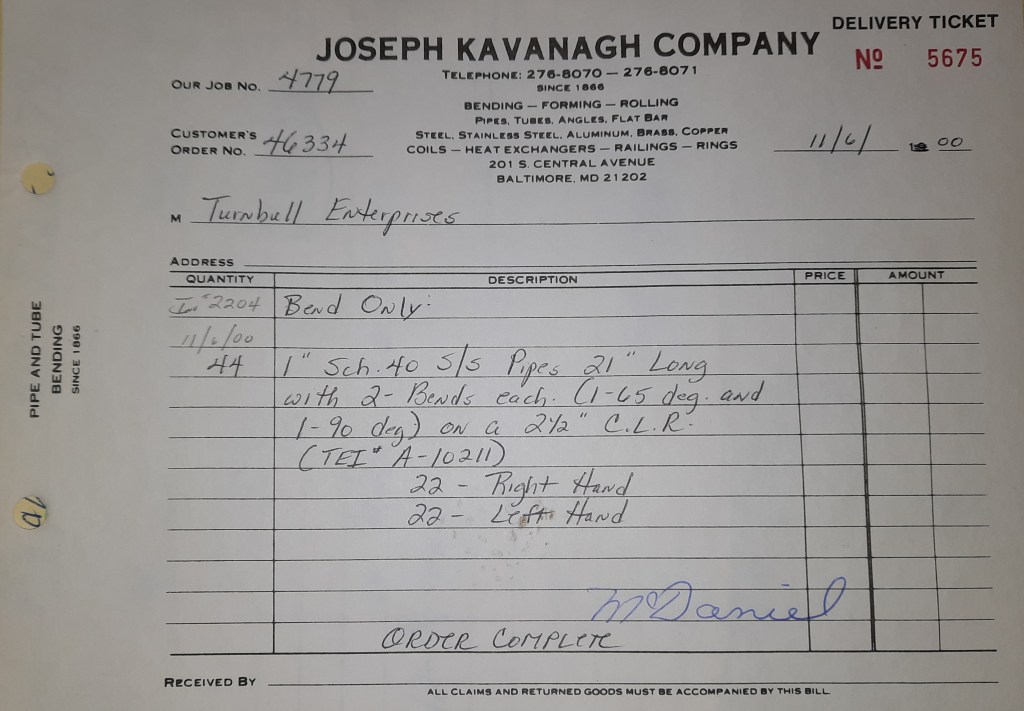 DELIVERY TICKET
JOSEPH KAVANAGH COMPANY
Nº 5675
TELEPHONE: 276-8070 — 276-8071
SINCE 1866
OUR JOB NO. 4779
BENDING — FORMING — ROLLING
PIPES, TUBES, ANGLES, FLAT BAR
STEEL, STAINLESS STEEL, ALUMINUM, BRASS, COPPER
CUSTOMER'S ORDER NO. 46334
COILS — HEAT EXCHANGERS — RAILINGS — RINGS
11/6/ 19 00
201 S. CENTRAL AVENUE
BALTIMORE, MD 21202
M Turnbull Enterprises
ADDRESS
QUANTITY DESCRIPTION PRICE AMOUNT
In # 2204 Bend Only:
11/6/00
44 1" Sch. 40 S/S Pipes 21" Long
with 2- Bends each. (1-65 deg. and
1-90 deg) on a 2½" C.L.R.
(TEI# A-10211)
22 - Right Hand
22 - Left Hand
McDaniel
ORDER COMPLETE
RECEIVED BY
ALL CLAIMS AND RETURNED GOODS MUST BE ACCOMPANIED BY THIS BILL
PIPE AND TUBE
BENDING
SINCE 1866